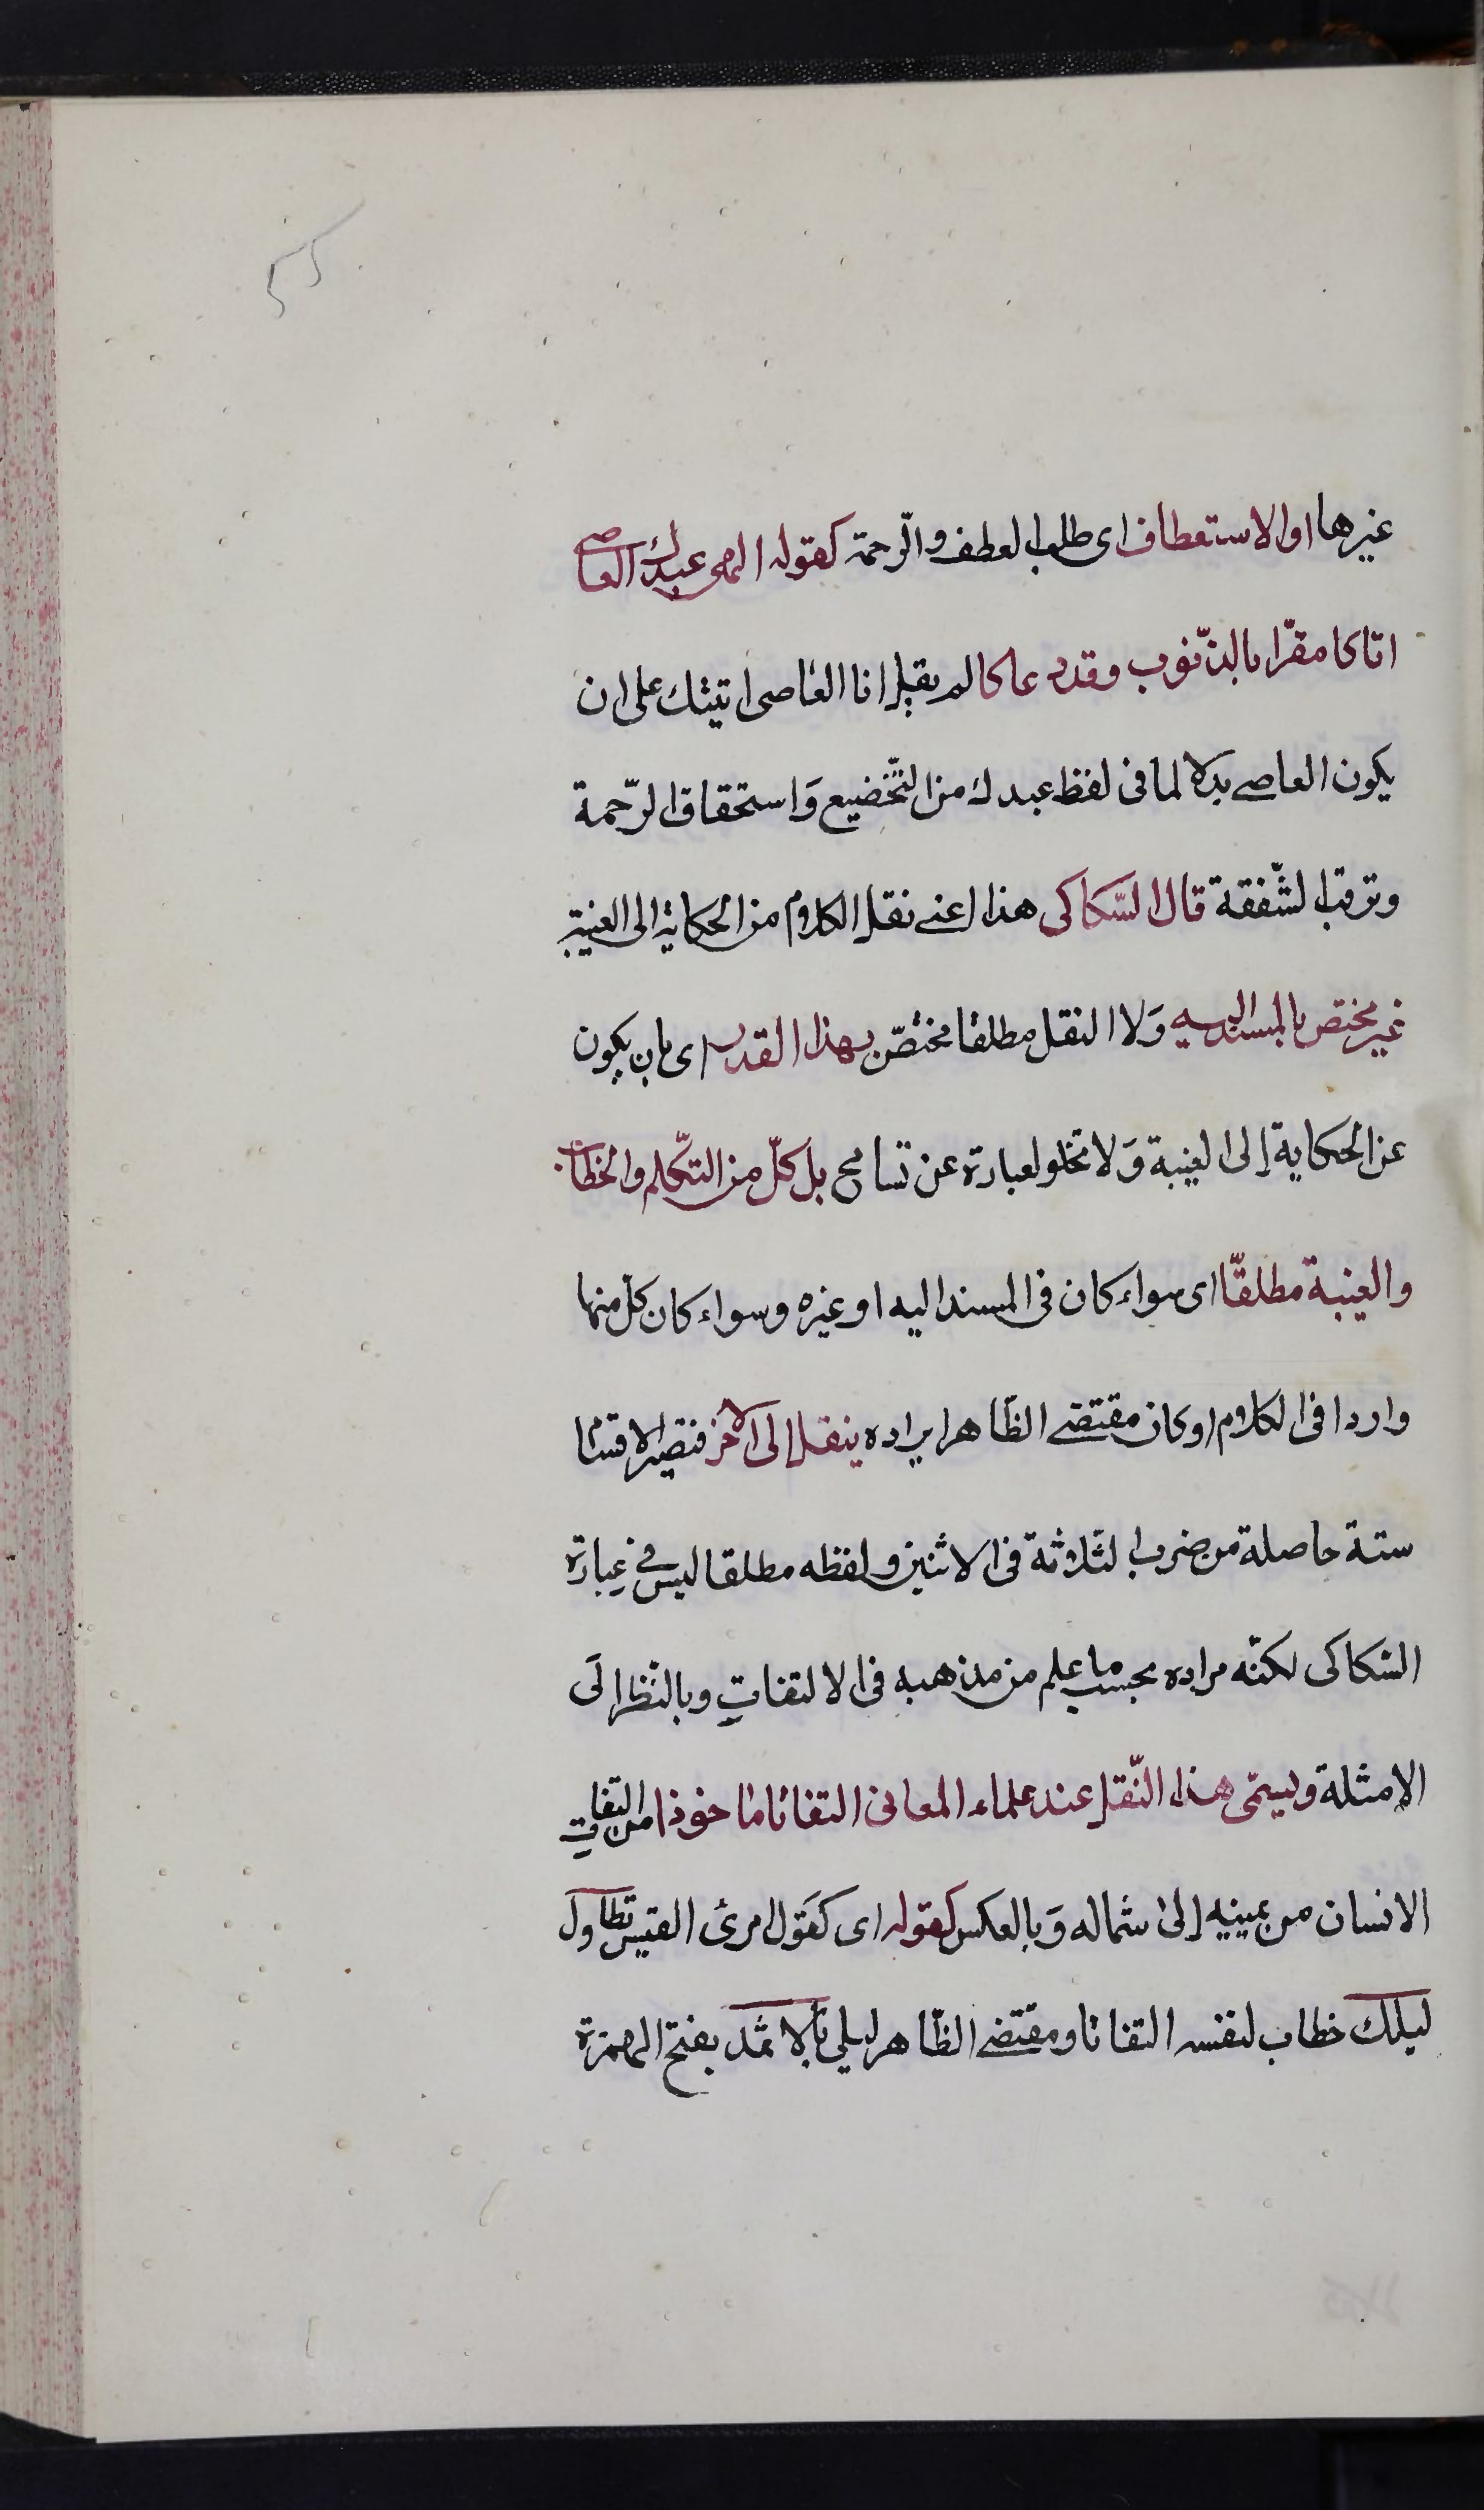 غيرها او الاستعطاف اى طلب العطف والرّحمة كقوله الهى عبدك العاصى
اتاكا مقرّا بالذّنوب وقد دعاكا لم يقل انا العاصى اتيتك على ان
يكون العاصى بدلا لما فى لفظ عبدك من التّخضيع وَاستحقاق الرّحمة
وترقب الشّفقة قال السّكاكى هذا اعنى نقل الكلام من الحكاية الى الغيبة
غير مختص بالمسند اليه وَلا النقل مطلقا مختصّ بهذا القدر اى بان يكون
عن الحكاية إلى الغيبة وَلا تخلو العبارة عن تسامح بل كلّ من التّكلم والخطاب
والغيبة مطلقّا اى سواء كان فى المسند اليه او غيره وسواء كان كلّ منها
واردا فى الكلام او كان مقتضى الظّاهر ايراده ينقل الى الآخر فتصير الاقسام
ستة حاصلة من ضرب الثلاثة فى الاثنين ولفظه مطلقا ليس فى عبارة
السّكاكى لكنّه مراده بحسب ما علم من مذهبه فى الالتفات وبالنّظر الَى
الامثلة ويسمّى هذا النّقل عند علماء المعانى التفاتا ماخوذا من التفات
الانسان من يمينه إلى شماله وَبالعكس كقوله اى كقَول امرئ القيس تطاول
ليلك خطاب لنفسه التفاتا ومقتضى الظّاهر ليلى بالاثمد بفتح الهمزة